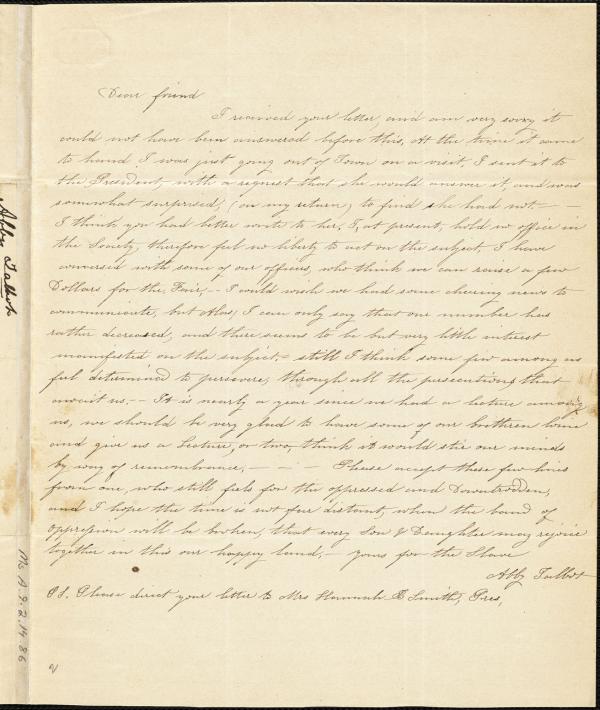 Dear friend
I received your letter, and am very sorry it
could not have been answered before this. At the time it came
to hand I was just going out of Town on a visit. I sent it to
the President, with a request that she would answer it, and was
somewhat surprised, (on my return,) to find she had not. — —
I think you had better write to her. I, at present, hold no office in
the Society, therefore feel no liberty to act on the subject. I have
conversed with some of our officers, who think we can raise a few
Dollars for the Fair, - I would wish we had some cheering news to
communicate, but Alas, I can only say that our number has
rather decreased, and there seems to be but very little interest
manifested on the subject. - still I think some few among us
feel determined to persevere, through all the persecutions that
await us. - It is nearly a year since we had a lecture among
us, we should be very glad to have some of our brethren come
and give us a Lecture, or two, think it would stir our minds
by way of remembrance. — — — Please accept these few lines
from one, who still feels for the oppressed and Downtrodden,
and I hope the time is not far distant, when the band of
oppression will be broken, that every Son & Daughter may rejoice
together in this our happy land. - yours for the Slave
Abby Talbot
PS. Please direct your letter to Mrs Hannah B Smith, Pres,
Abby Talbot
Ms. A. 9. 2. 14. 86